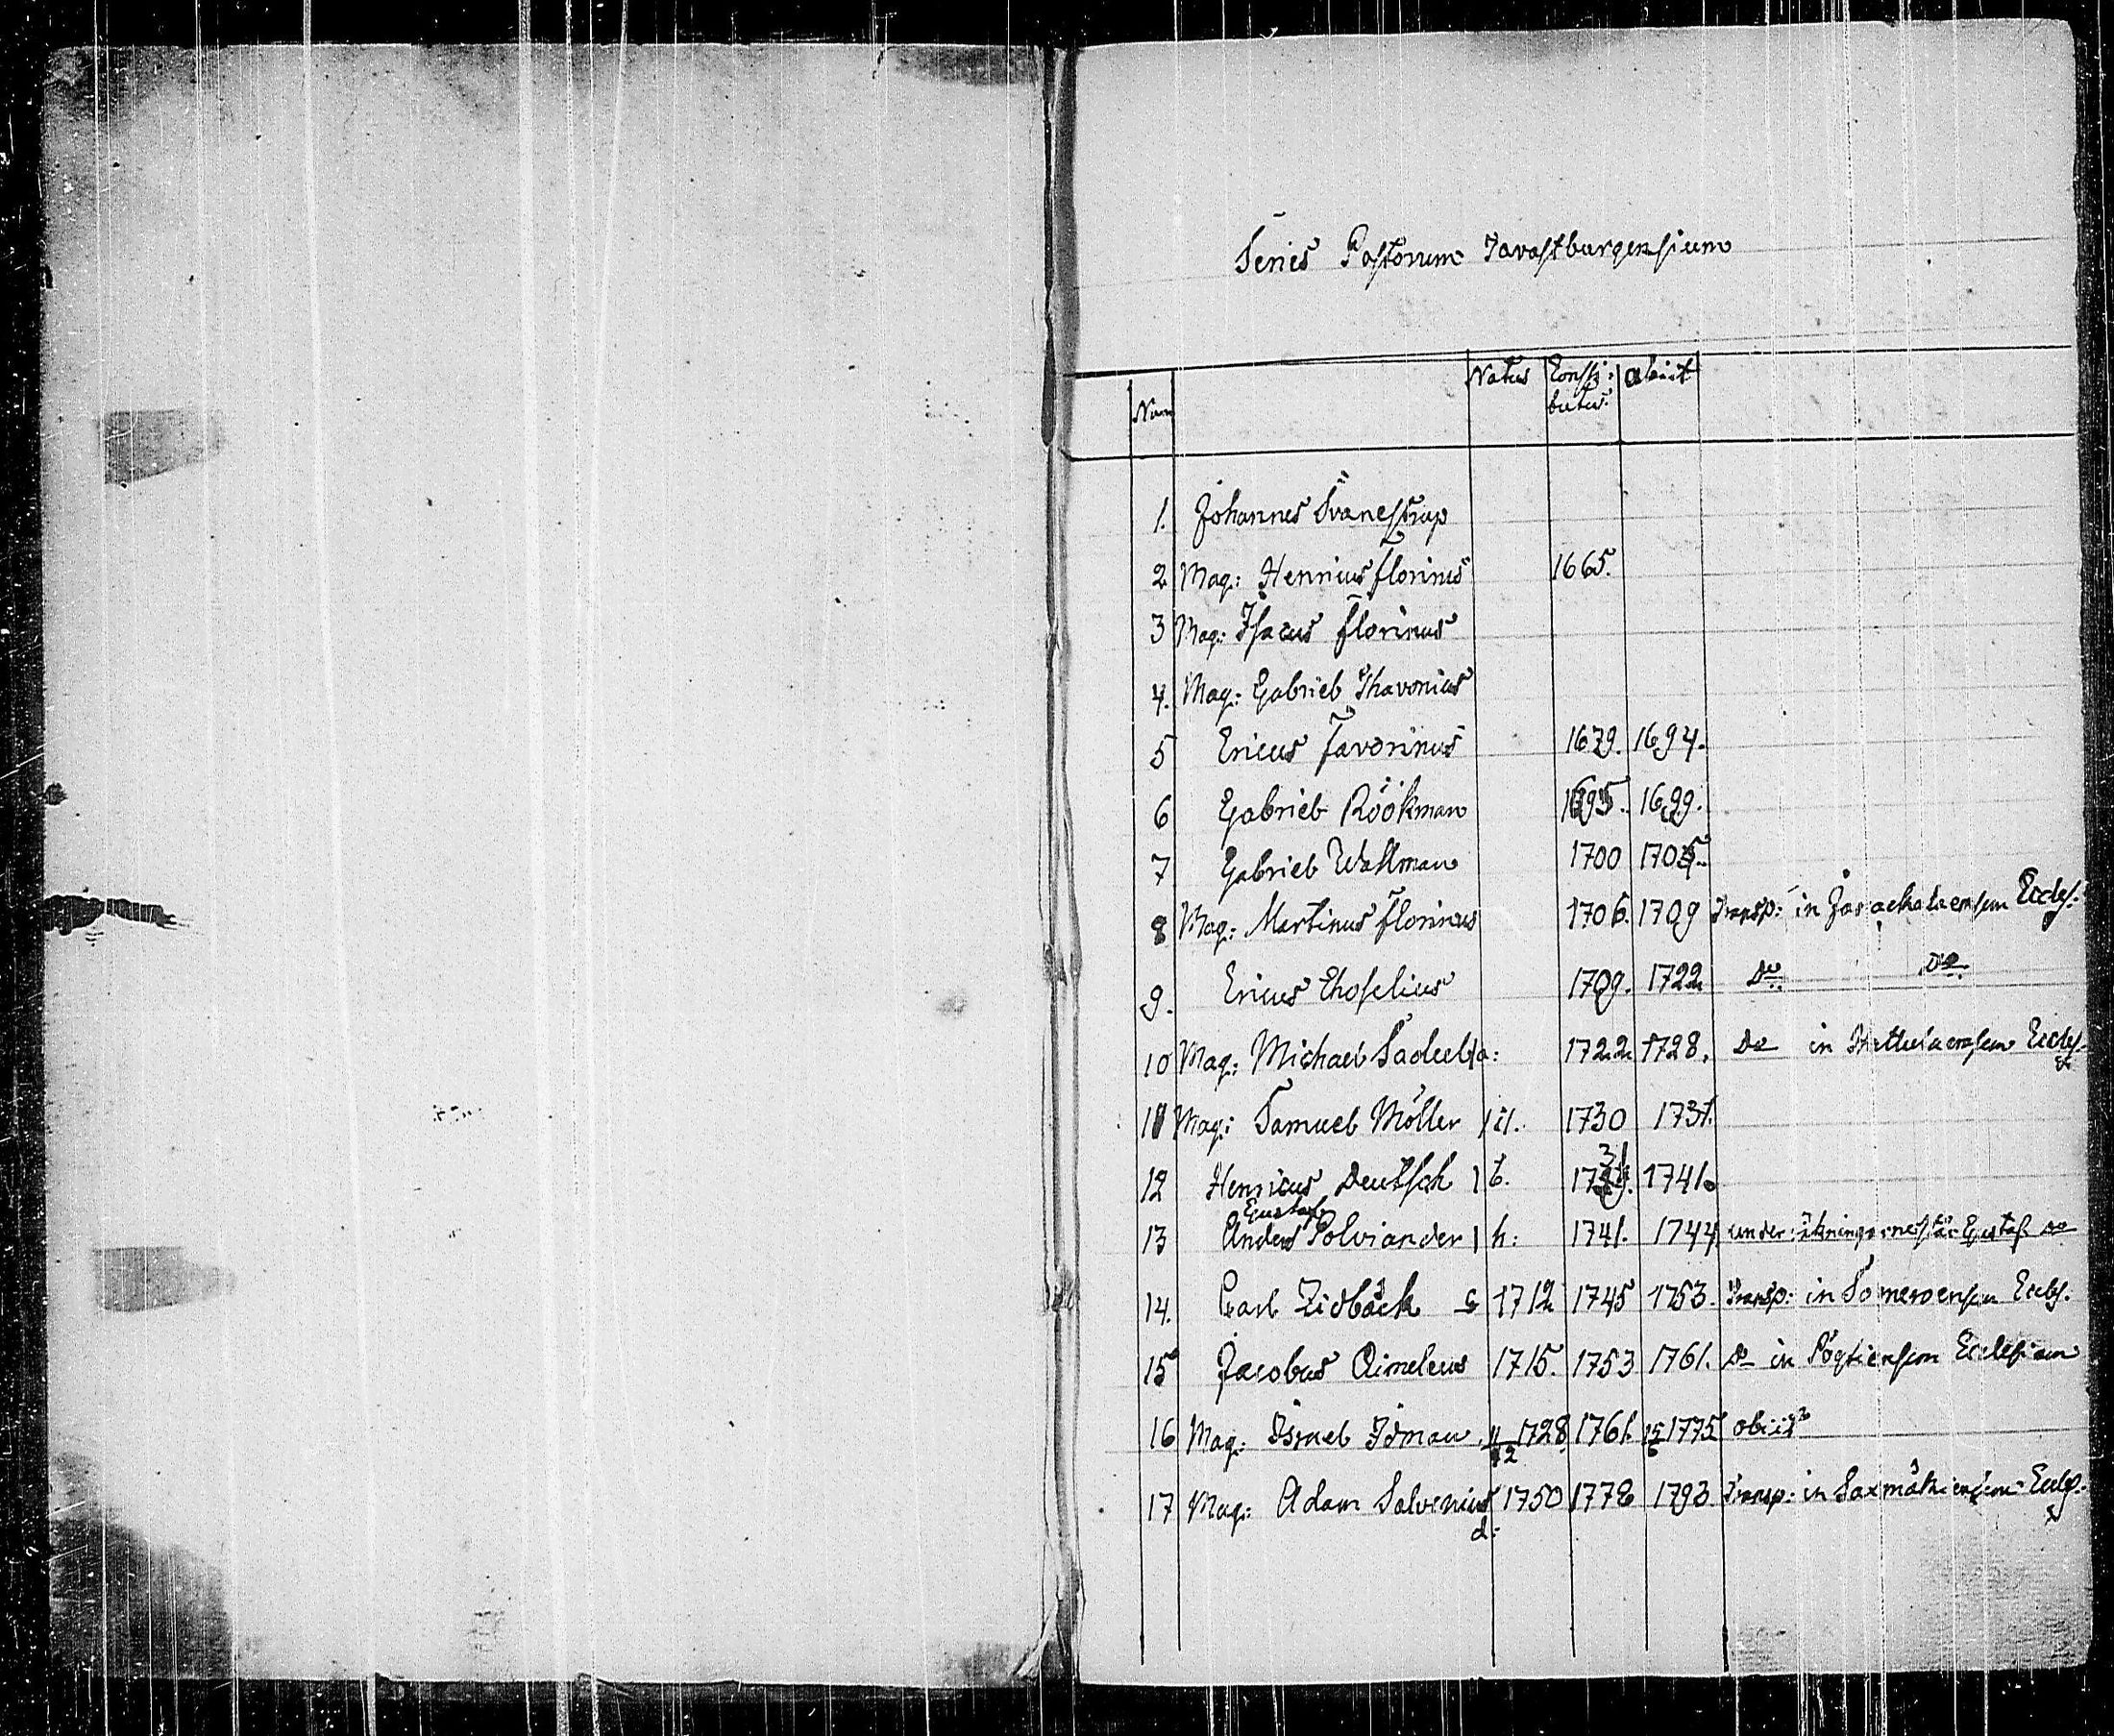 Series Pastorum Tavastburgensium
Num Natus Consti: abiit
tutus
1. Johannes Svanestrup
2 Mag: Henricus Florinus 1665.
3 Mag: Isacus Florinus
4. Mag: Gabriel Thavonius
5 Ericus Favorinus 1679. 1694.
6 Gabriel Röökman 1695. 1699.
7 Gabriel Wallman 1700 1705.
8 Mag: Martinus Florinus 1706. 1709 Transp: in Eccles:
9. Ericus Ehoselius 1709. 1722 Do Do
10 Mag: Michael 1722 1728. Do in Eccles.
11 Mag: Samuel Möller 1730 1731.
12 Henricus Deutsch 1731. 1741.
Gustaf
13 Anders Polviander h: 1741. 1744 Gustaf
14. Carl Lidbäck 1712 1745 1753. Transp: in Someroensem Eccles.
15 Jacobus Aimeleus 1715. 1753 1761. Do in Pöytiensem Ecclesiam
16 Mag: Israel Idman 11/12 1728 1761. 1775 obiit
17 Mag: Adam Salvenius 1750 1778 1793 Transp: in Saxmäkiensem Eccles.
d: